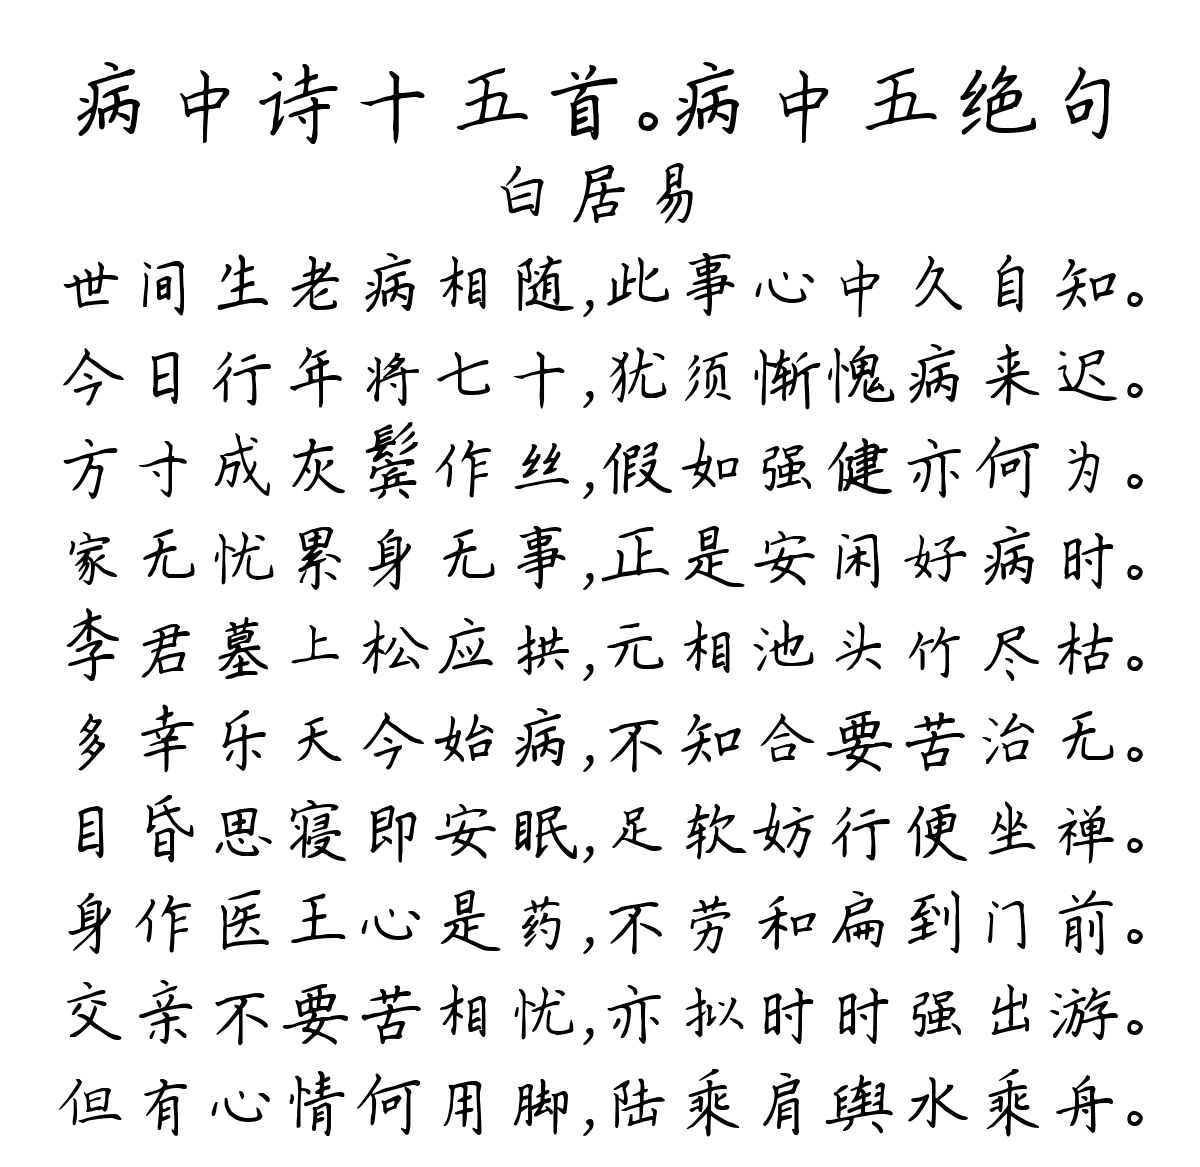 病中诗十五首。病中五绝句
白居易
世间生老病相随,此事心中久自知。
今日行年将七十,犹须惭愧病来迟。
方寸成灰鬓作丝,假如强健亦何为。
家无忧累身无事,正是安闲好病时。
李君墓上松应拱,元相池头竹尽枯。
多幸乐天今始病,不知合要苦治无。
目昏思寝即安眠,足软妨行便坐禅。
身作医王心是药,不劳和扁到门前。
交亲不要苦相忧,亦拟时时强出游。
但有心情何用脚,陆乘肩舆水乘舟。